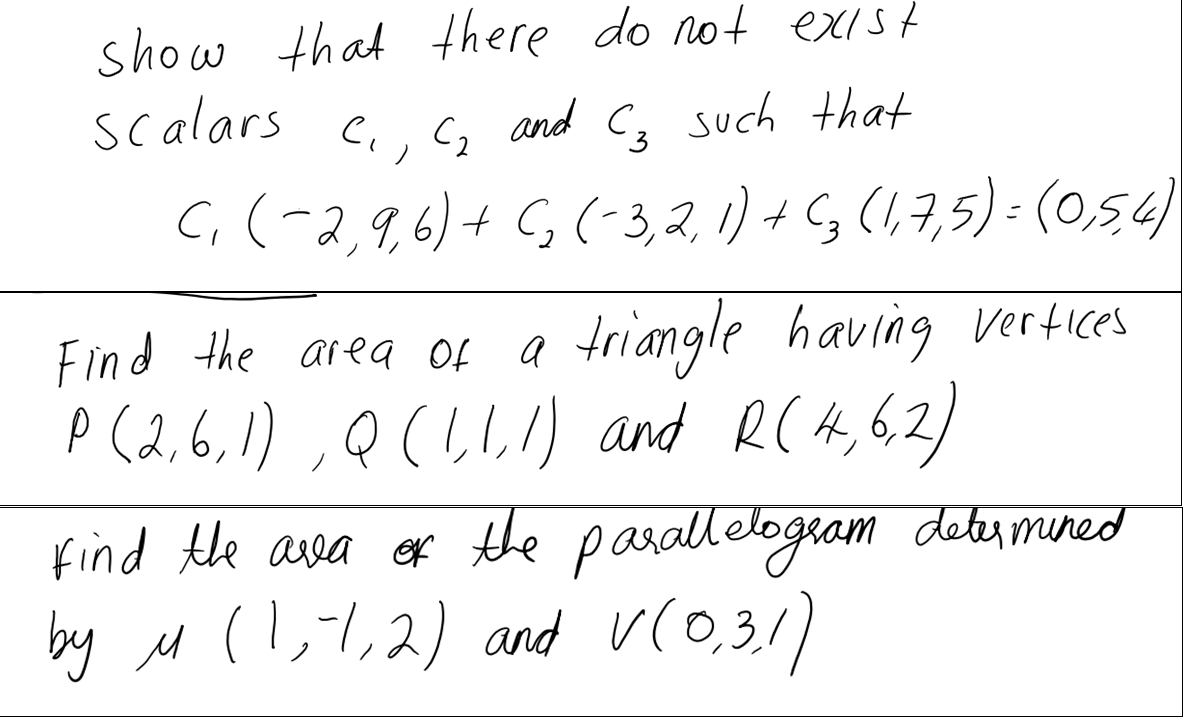 show that there do not exist
scalars c₁, c₂ and c₃ such that
c₁ (-2,9,6) + c₂ (-3,2,1) + c₃ (1,7,5) = (0,5,4)
Find the area of a triangle having vertices
P(2,6,1), Q(1,1,1) and R(4,6,2)
Find the area of the parallelogram determined
by μ (1,-1,2) and V(0,3,1)